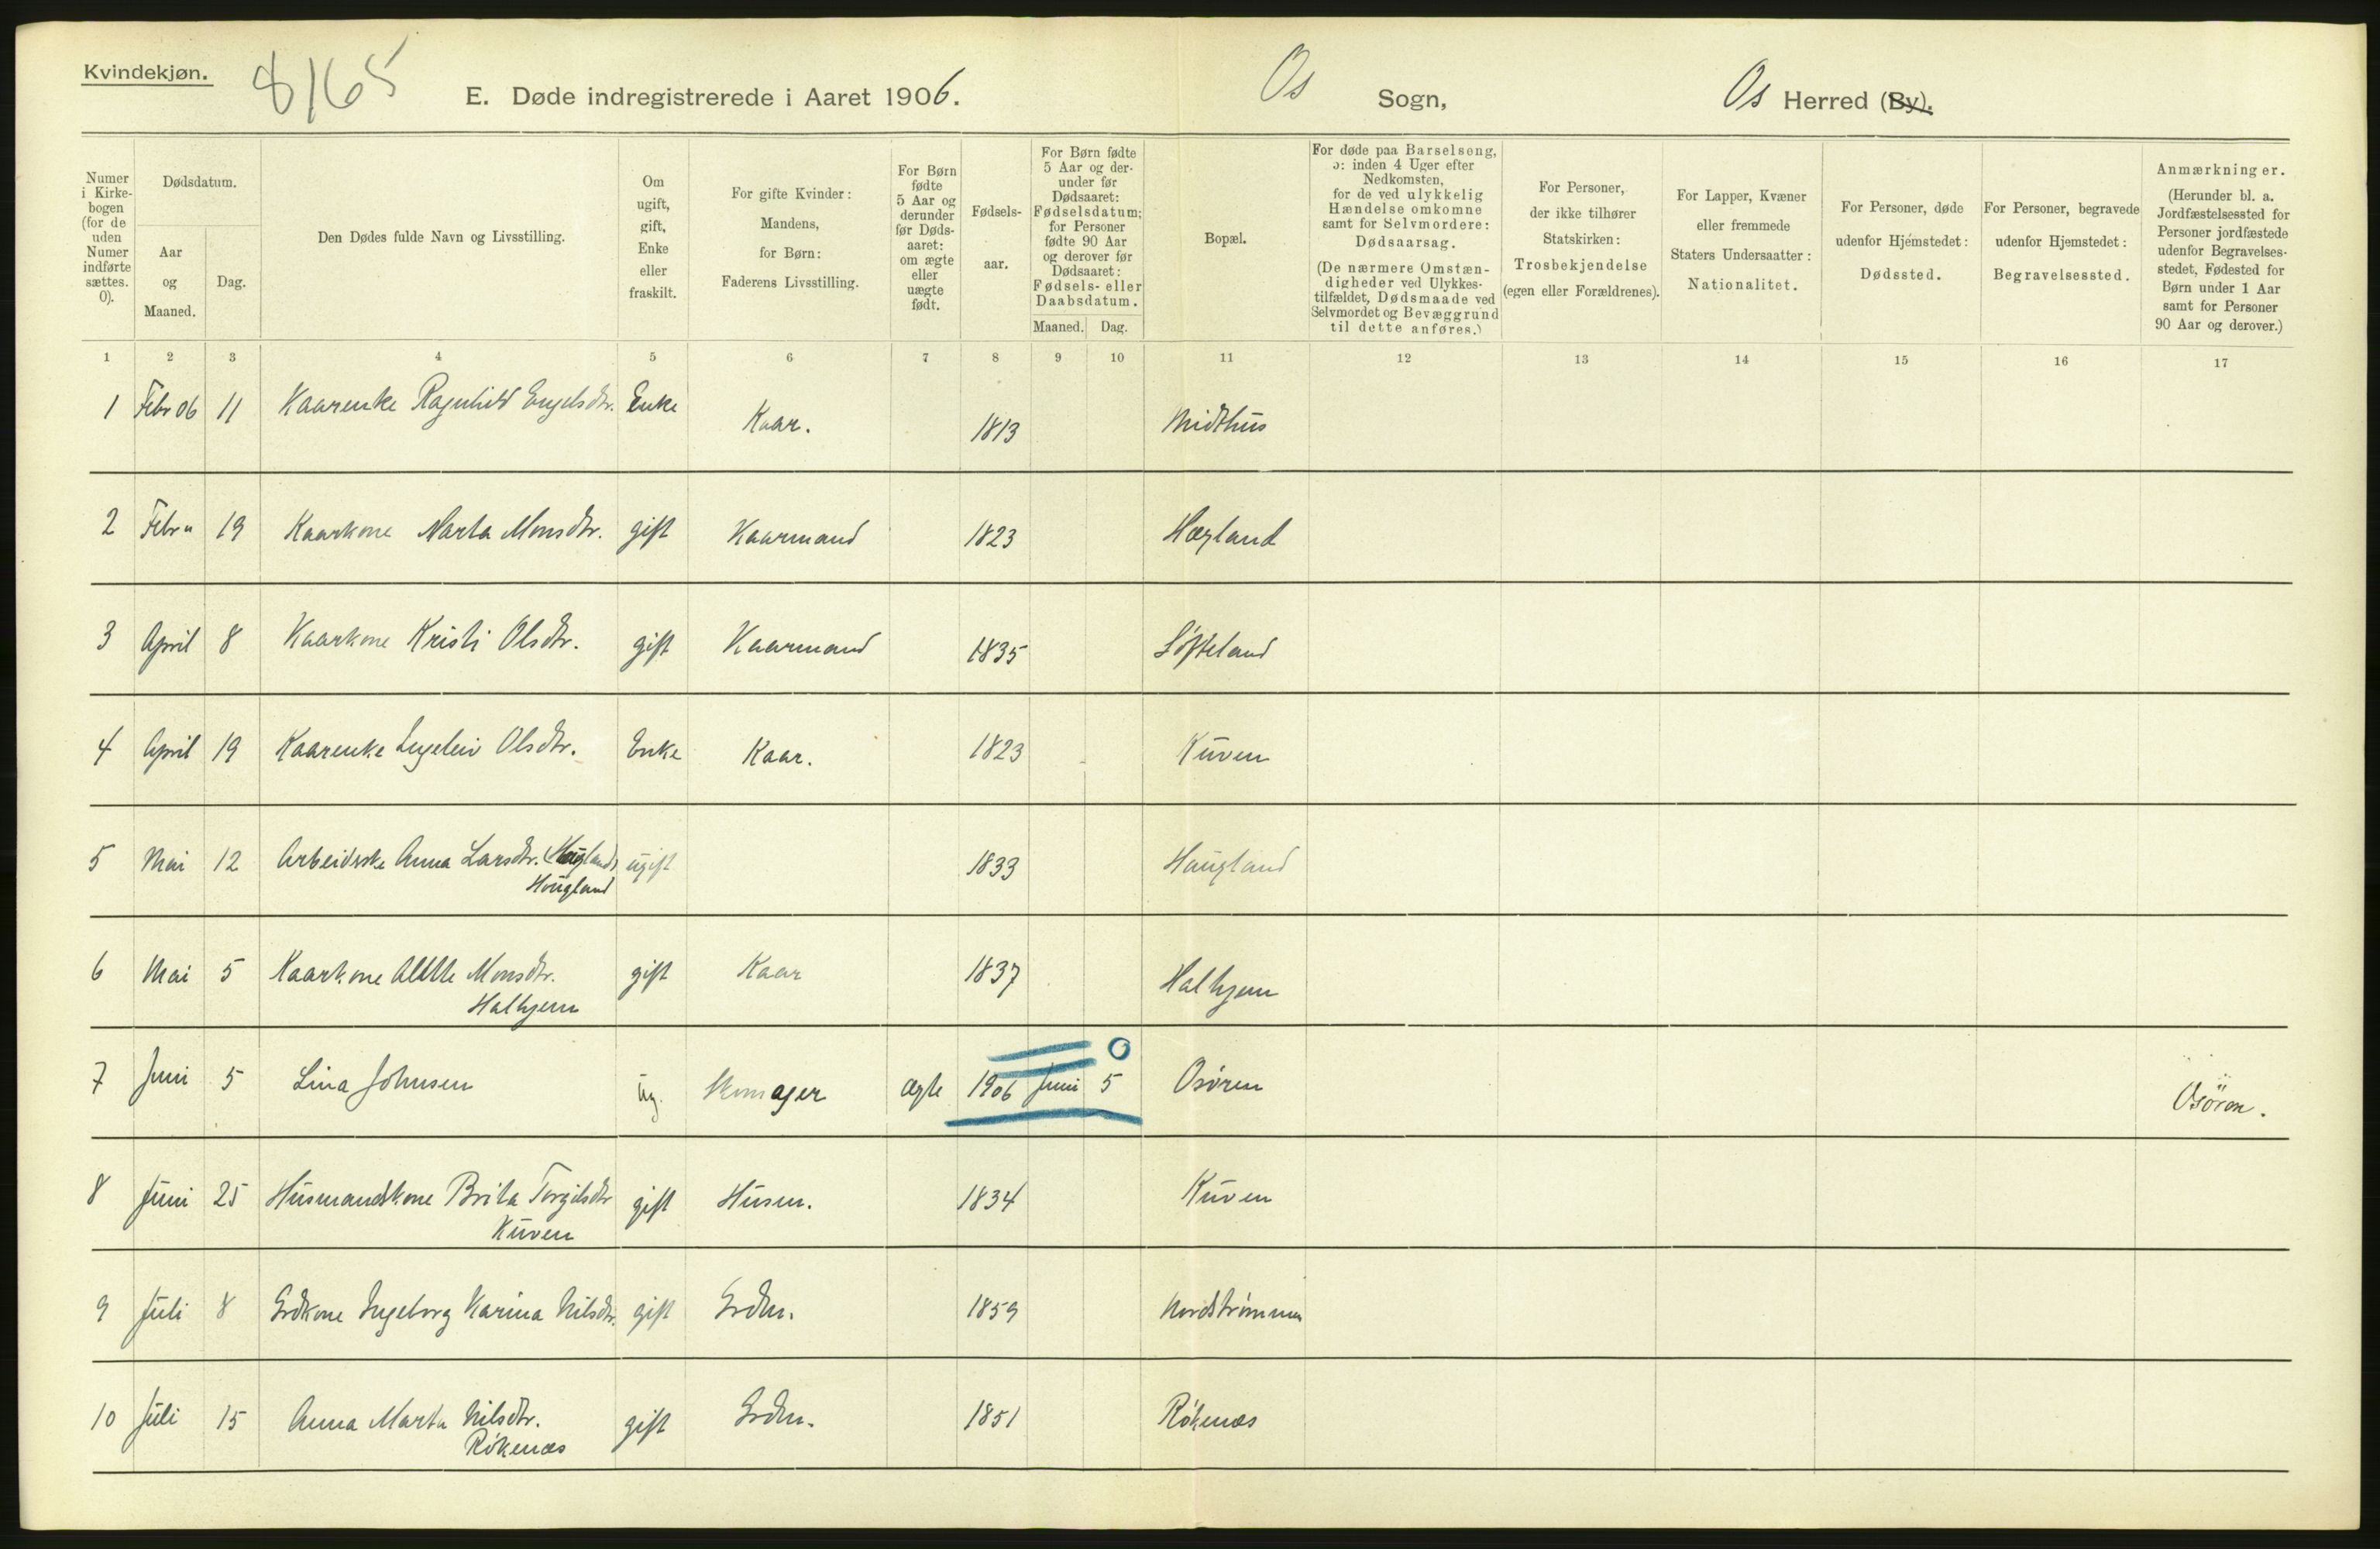 Kvindekjøn.
8165
E. Døde indregistrerede i Aaret 1906.
Os Sogn,
Os Herred (By).
Numer i Kirke-bogen (for de uden Numer indførte sættes. 0).
Dødsdatum.
Aar og Maaned.
Dag.
Den Dødes fulde Navn og Livsstilling.
Om ugift, gift, Enke eller fraskilt.
For gifte Kvinder: Mandens, for Børn: Faderens Livsstilling.
For Børn fødte 5 Aar og derunder før Døds-aaret: om ægte eller uægte født.
Fødsels-aar.
For Børn fødte 5 Aar og der-under før Dødsaaret: Fødselsdatum; for Personer fødte 90 Aar og derover før Dødsaaret: Fødsels- eller Daabsdatum.
Maaned. Dag.
Bopæl.
For døde paa Barselseng, ɔ: inden 4 Uger efter Nedkomsten, for de ved ulykkelig Hændelse omkomne samt for Selvmordere: Dødsaarsag.
(De nærmere Omstæn-digheder ved Ulykkes-tilfældet, Dødsmaade ved Selvmordet og Bevæggrund til dette anføres.)
For Personer, der ikke tilhører Statskirken: Trosbekjendelse (egen eller Forældrenes).
For Lapper, Kvæner eller fremmede Staters Undersaatter: Nationalitet.
For Personer, døde udenfor Hjemstedet: Dødssted.
For Personer, begravede udenfor Hjemstedet: Begravelsessted.
Anmærkninger.
(Herunder bl. a. Jordfæstelsessted for Personer jordfæstede udenfor Begravelses-stedet, Fødested for Børn under 1 Aar samt for Personer 90 Aar og derover.)
1 2 3 4 5 6 7 8 9 10 11 12 13 14 15 16 17
1 Febr 06 11 Kaarenke Ragnhild Engelsdtr. Enke Kaar. 1813 Midthus
2 Febr " 19 Kaarkone Marta Monsdtr. gift Kaarmand 1823 Hægland
3 April 8 Kaarkone Kristi Olsdtr. gift Kaarmand 1835 Løfteland
4 April 19 Kaarenke Ingeleiv Olsdtr. Enke Kaar. 1823 Kuven
5 Mai 12 Arbeidrske Anna Larsdtr. ugift 1833 Haugland
Haugland
6 Mai 5 Kaarkone Monsdtr. gift Kaar 1837 Halhjem
Halhjem
7 Juni 5 Lina Johnsen ug. Skomager ægte 1906 Juni 5 Osøren Osøren.
0
8 Juni 25 Husmandskone Brita Torgilsdtr gift Husm. 1834 Kuven
Kuven
9 Juli 8 Grdkone Ingeborg Karina Nilsdtr. gift Grdm. 1859 Nordstrømmen
10 Juli 15 Anna Marta Nilsdtr. gift Grdm. 1851 Røkenæs
Røkenæs